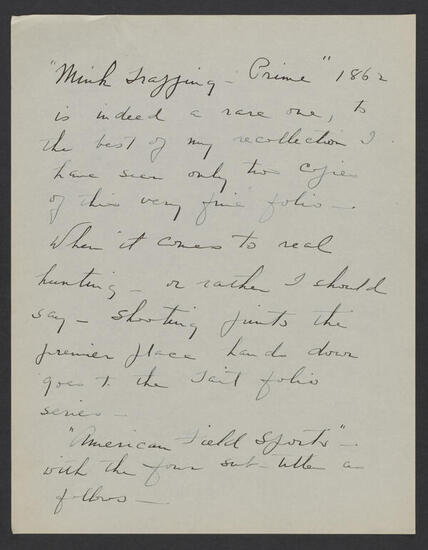 "Mink Trapping - Prime" 1862
is indeed a rare one, to
the best of my recollection I
have seen only two copies
of this very fine folio -
When it comes to real
hunting - or rather I should
say - shooting prints the
premier place hands down
goes to the Tait folio
series -
"American Field Sports" -
with the four sub-titles as
follows -